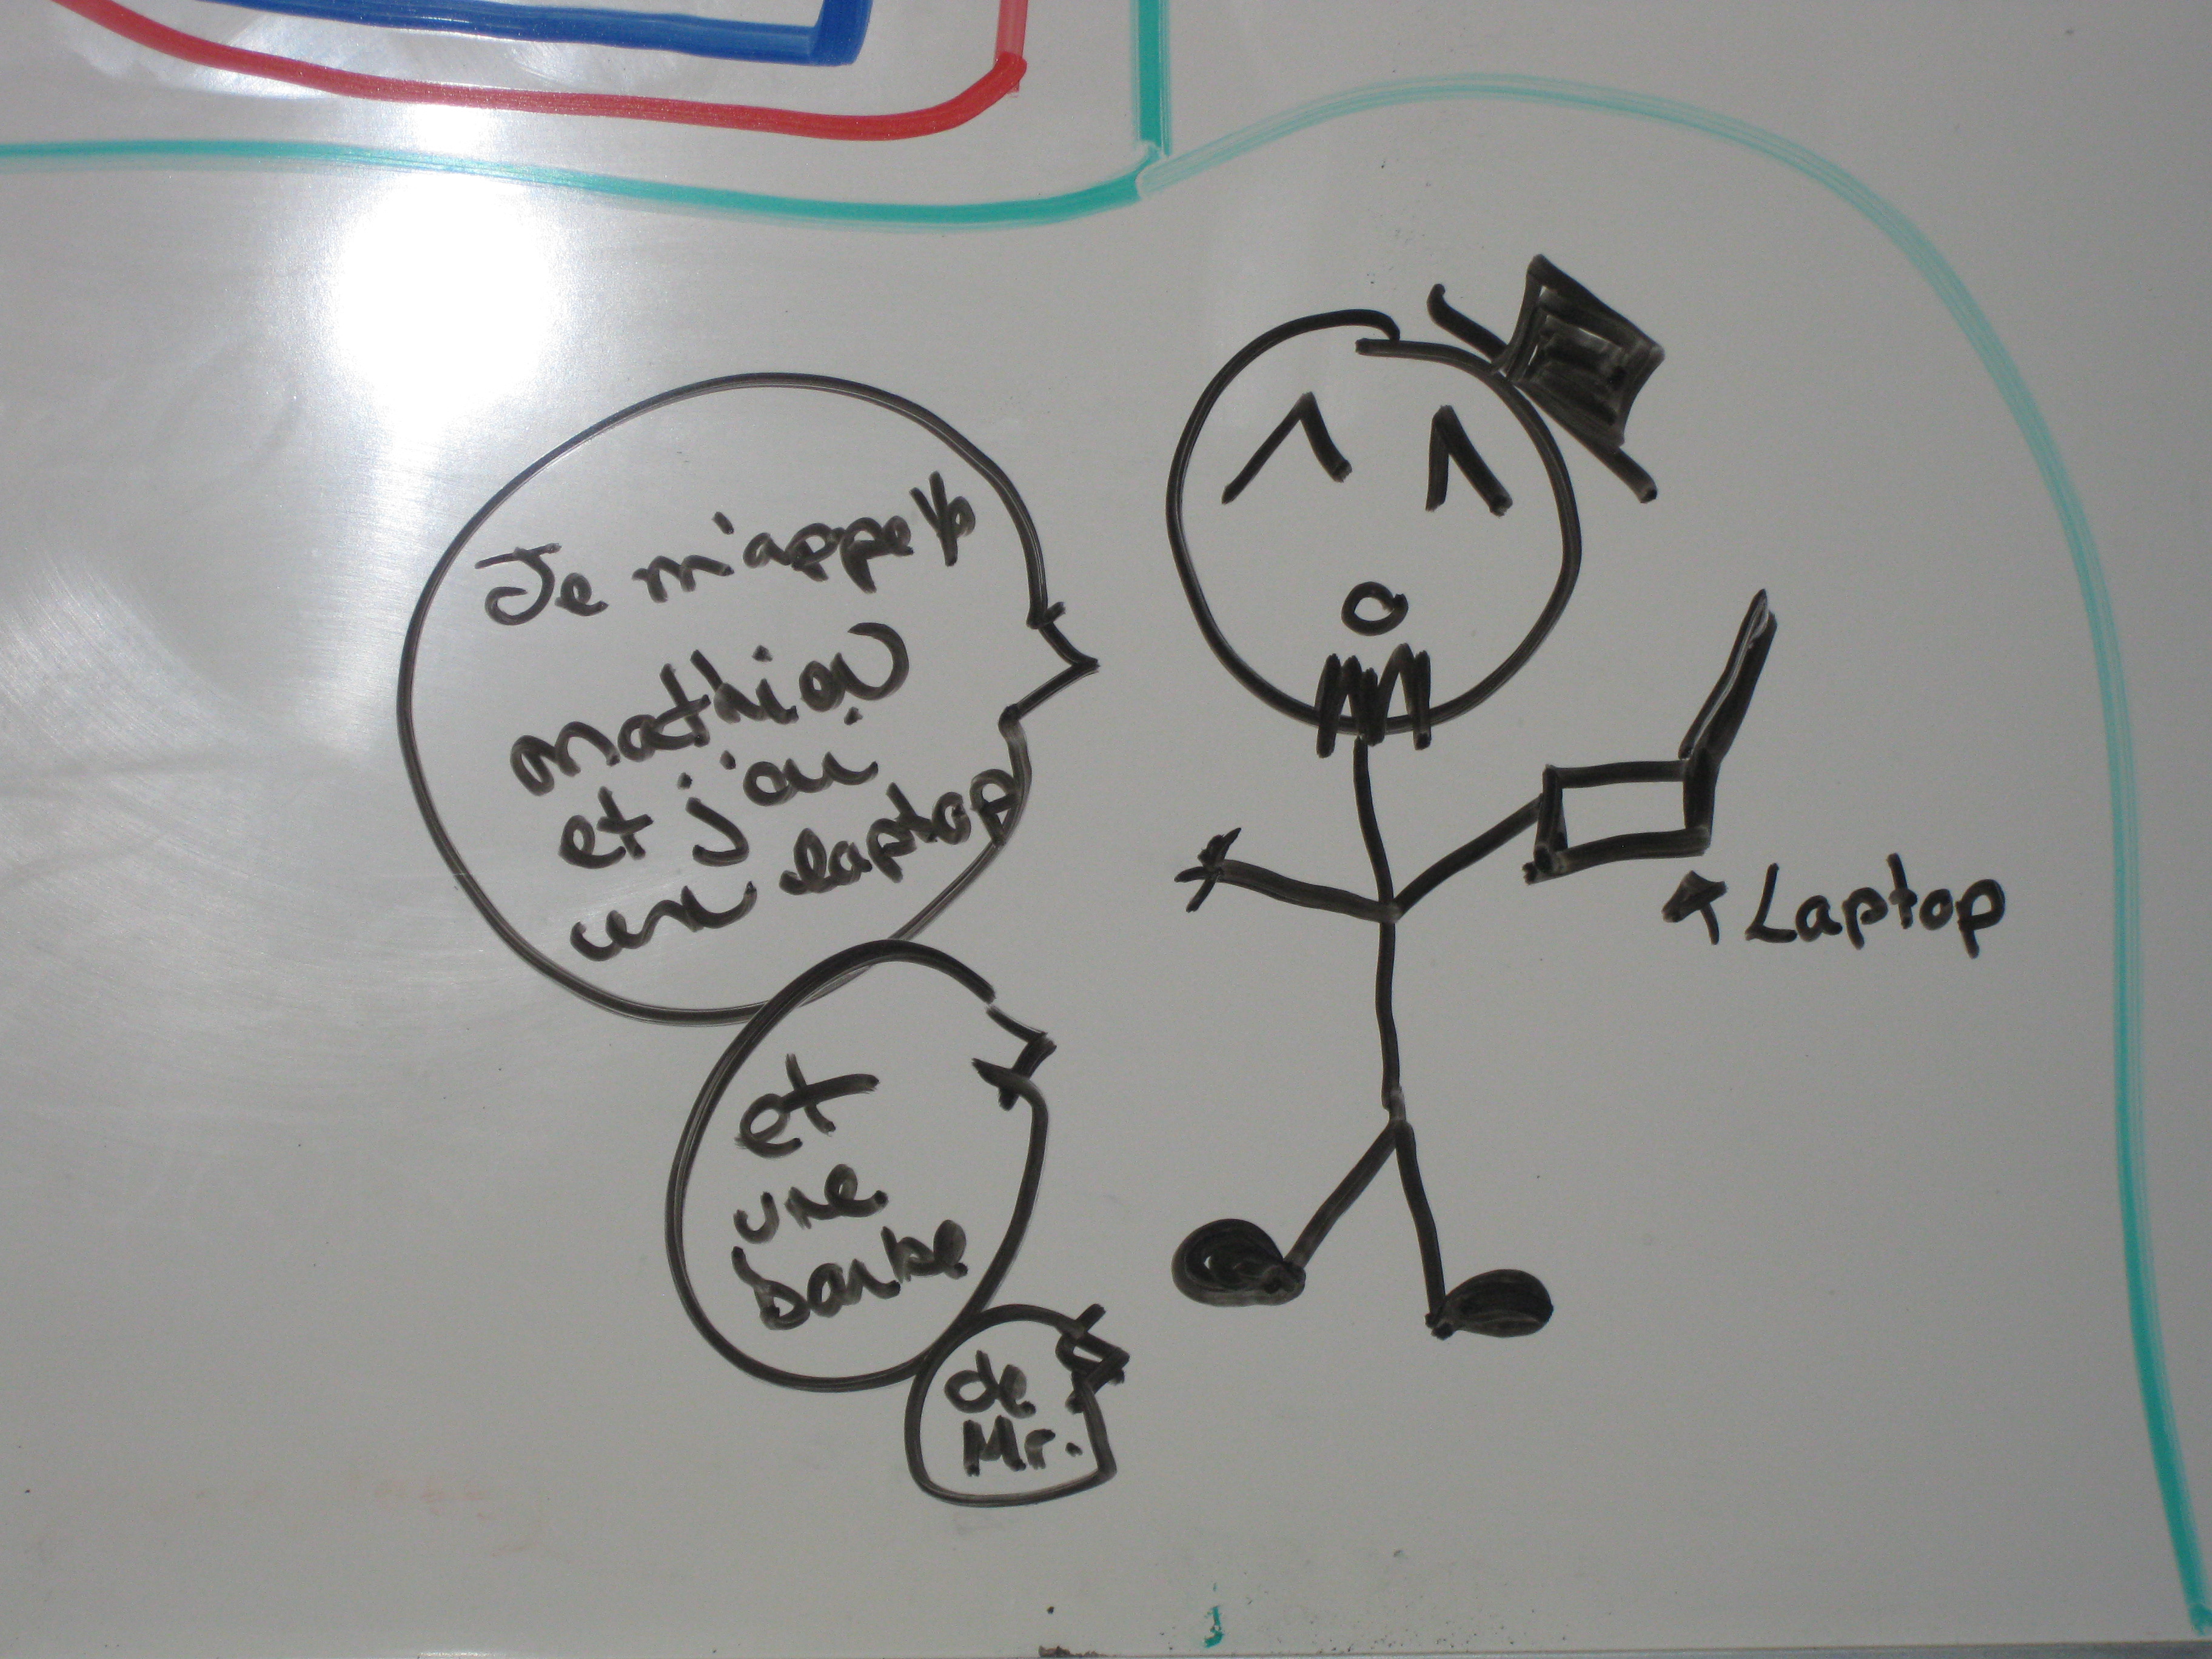 Je m'appelle
mathieu
et j'ai
une laptop
et
une
barbe
de
Mr.
Laptop